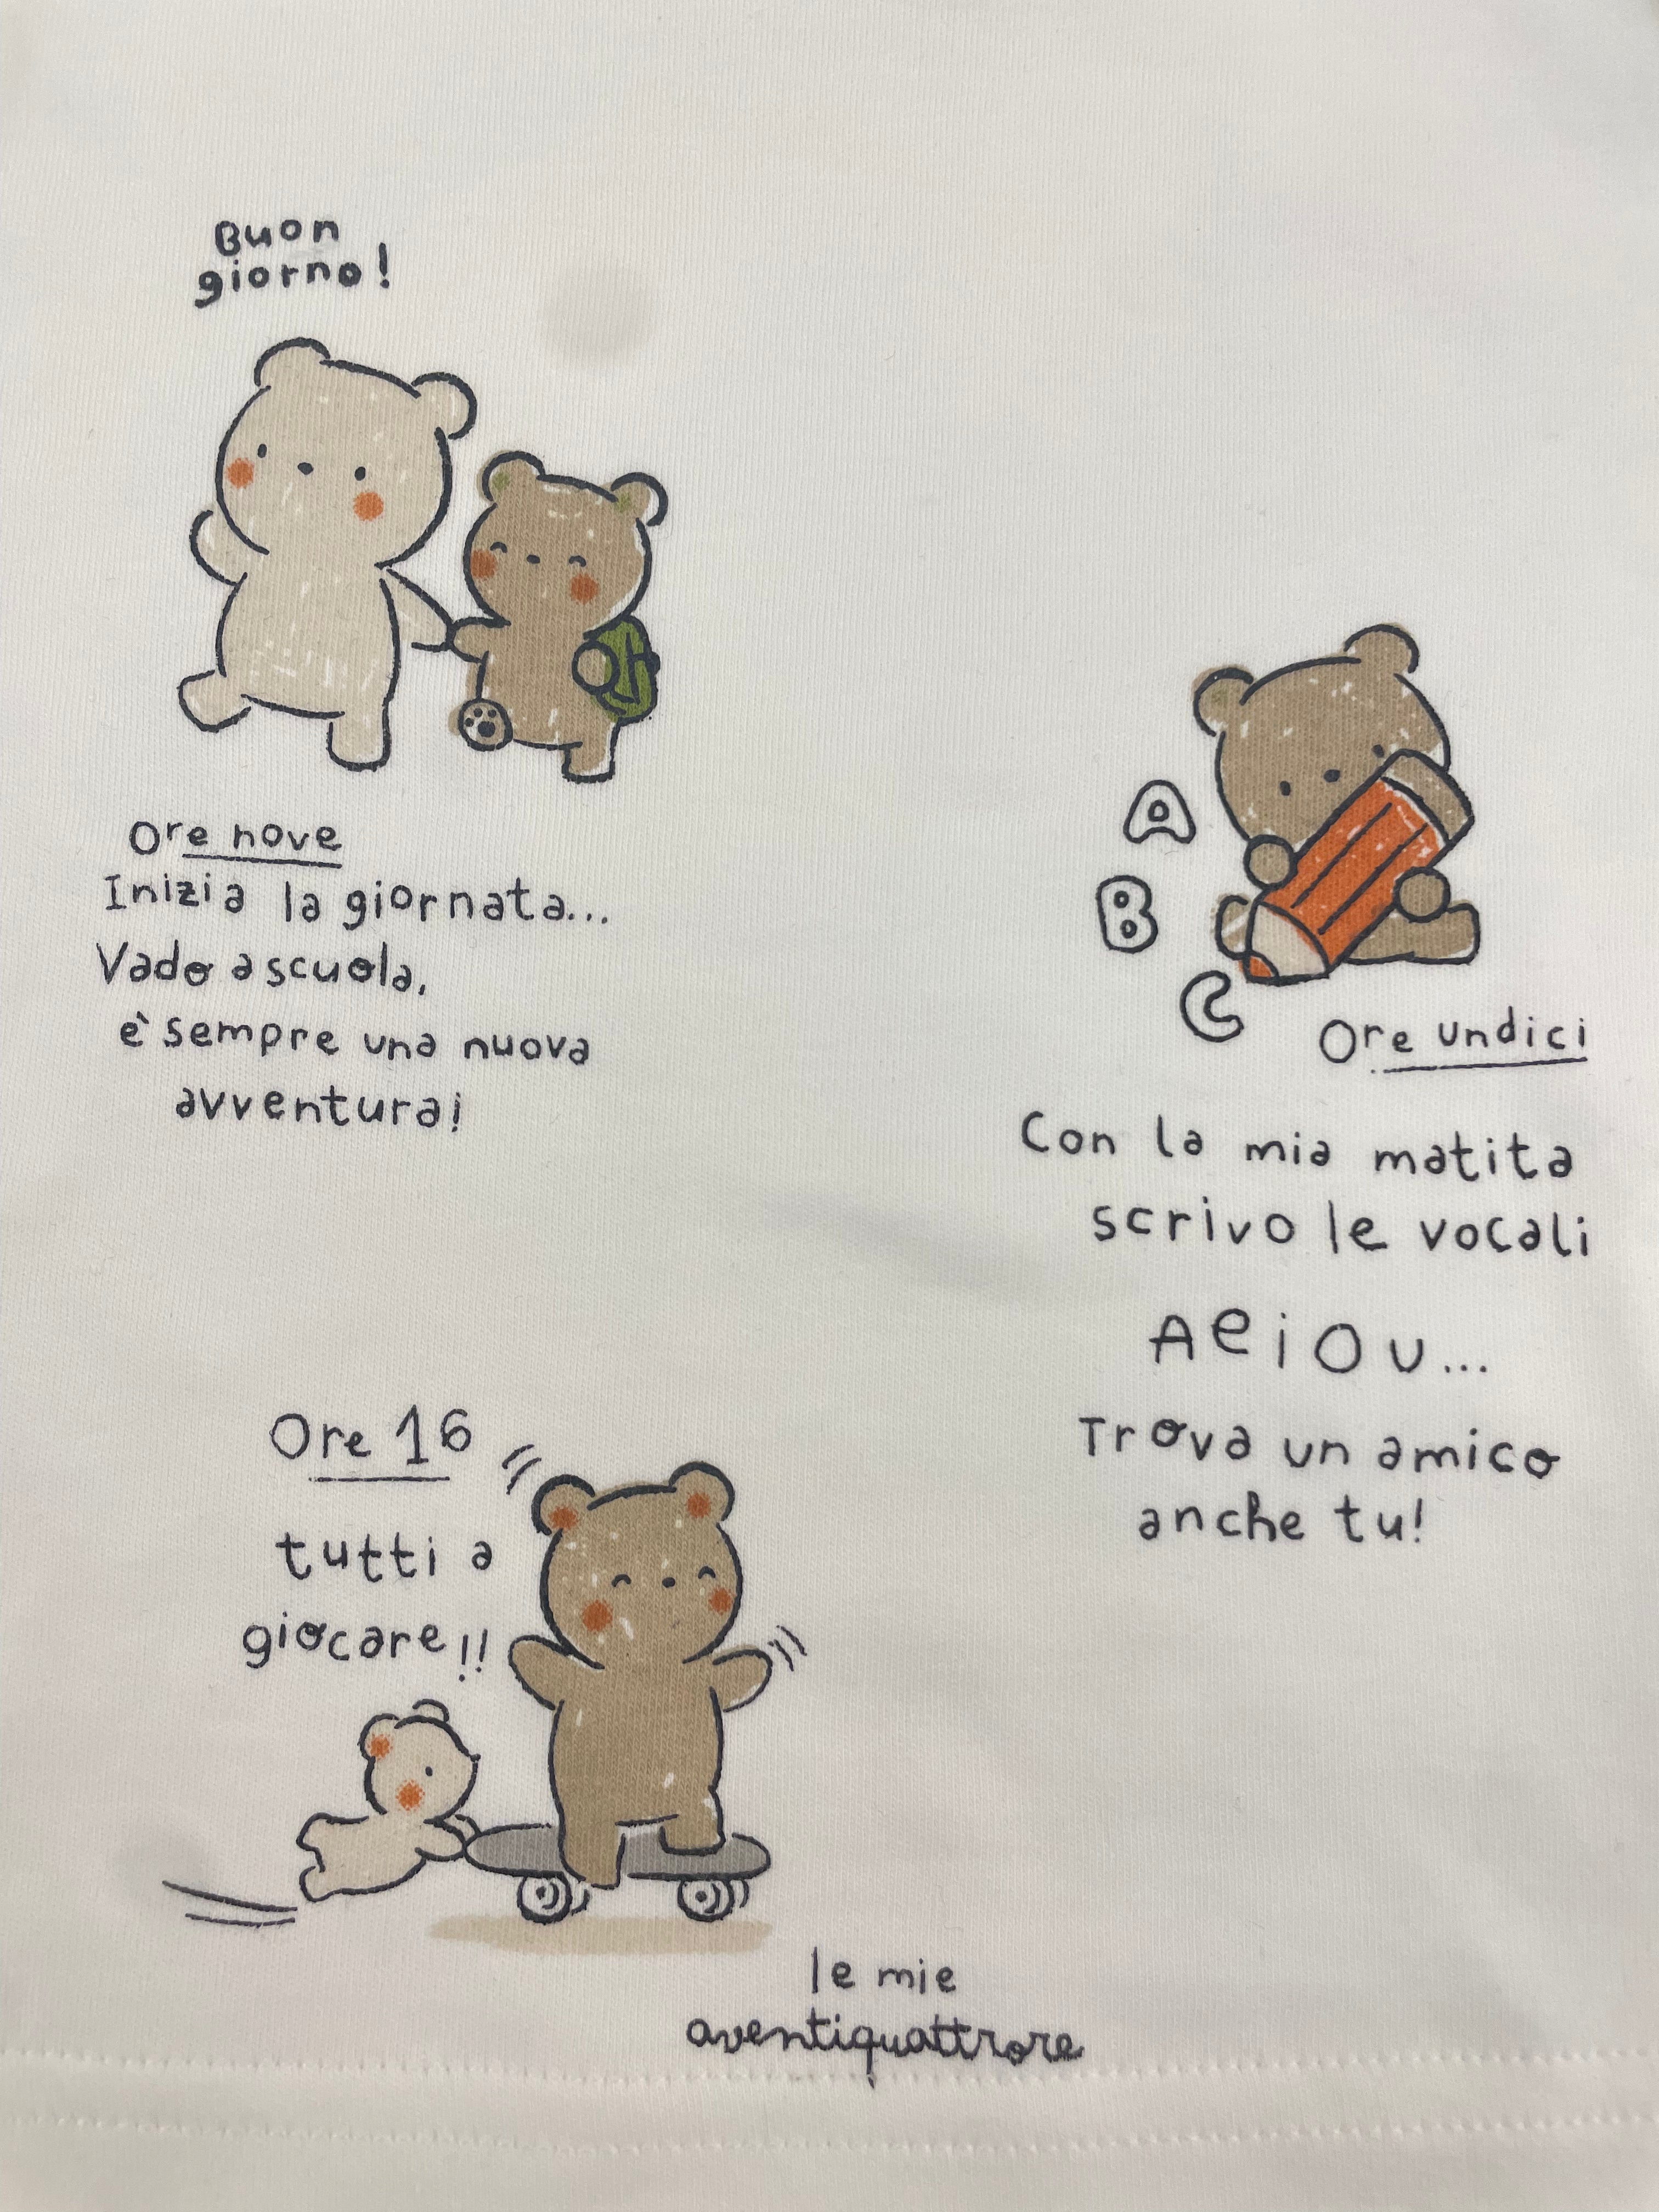 Buon
giorno!
Ore nove
Inizia la giornata...
Vado a scuola,
è sempre una nuova
avventura!
A
B
C
Ore undici
Con la mia matita
scrivo le vocali
A e i O U...
Trova un amico
anche tu!
Ore 16
tutti a
giocare!!
le mie
aventiquattrore